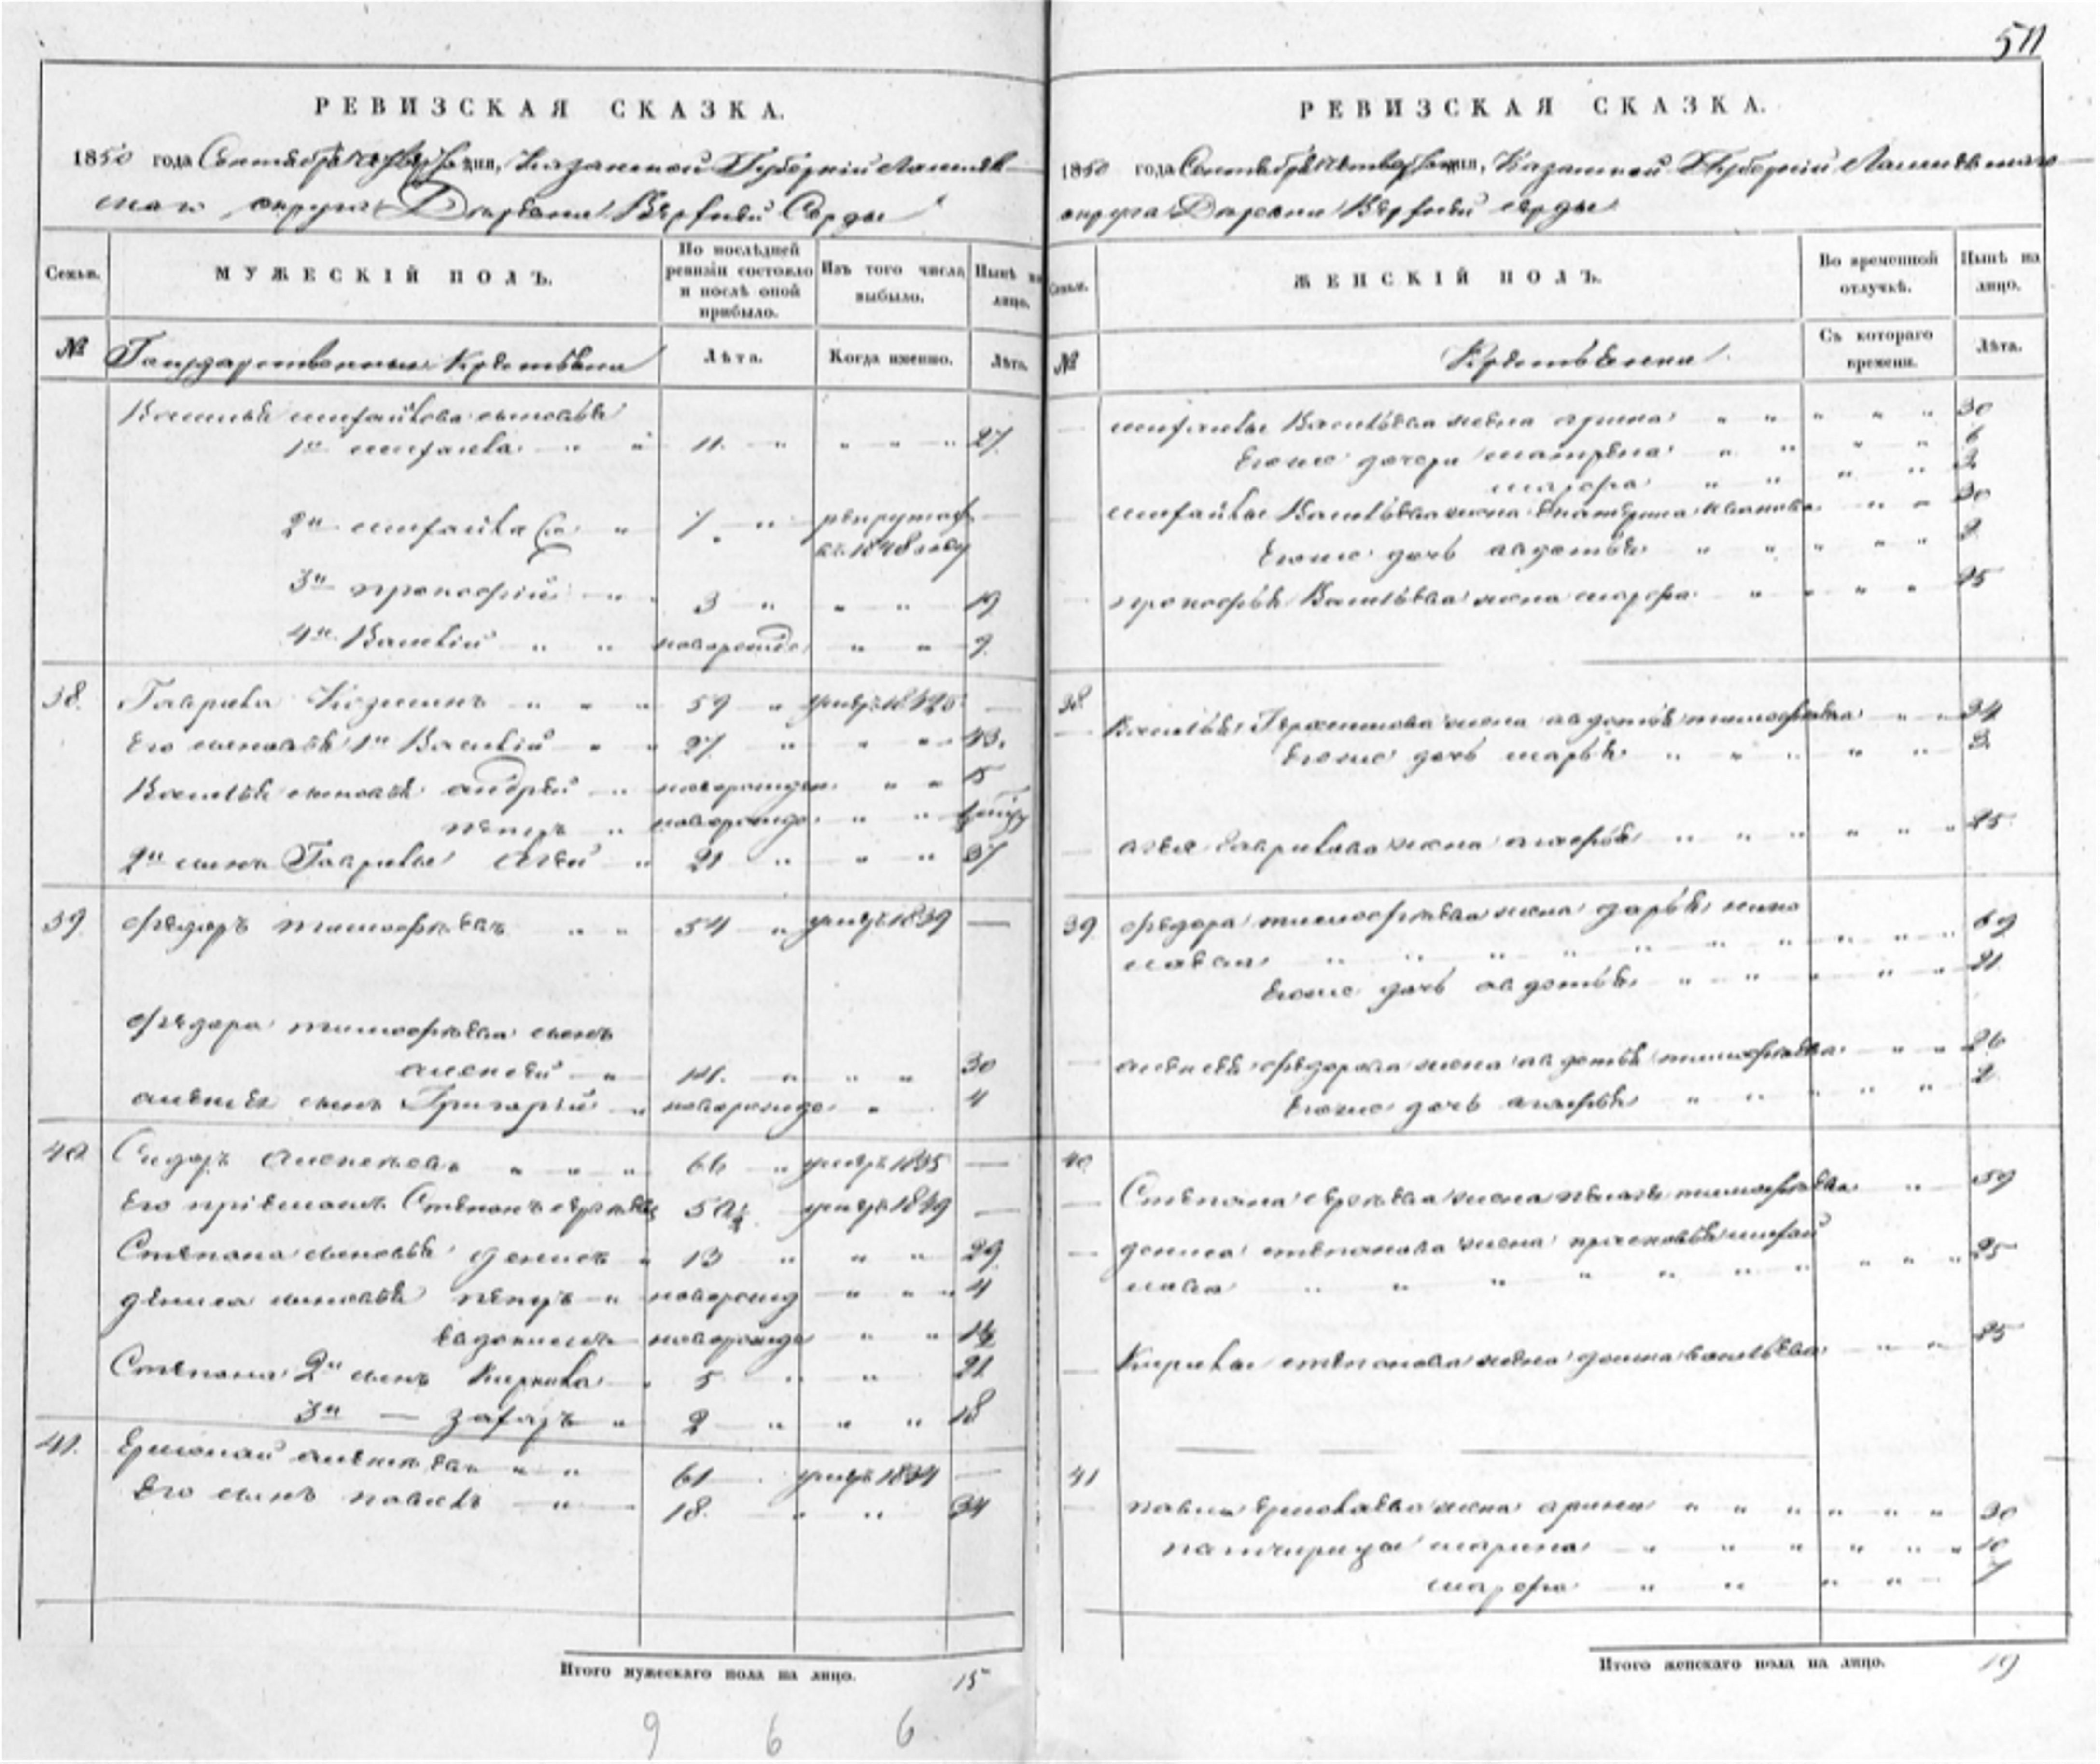 511
РЕВИЗСКАЯ СКАЗКА.
1850 года Сентября дня, Казанской Губернiи Лаишев
скаго округа Деревни Верхней Серды
Семьи. МУЖЕСКІЙ ПОЛЪ. По послѣдней ревизіи состояло и послѣ оной прибыло. Изъ того числа выбыло. Нынѣ на лицо.
№ Государственные Крестьяне Лѣта. Когда именно. Лѣта.
Василья сыновья
1й 11 27
2й 7 рекрутах
въ 1848 году
3й прокофій 3 19
4й Василій новорожде 9
38. Гаврила Козминъ 59 умеръ
Его сыновья 1й Василій 27 43
Василья сыновья андрей новорожден 15
петръ новорожде
2й сынъ Гаврилы 21 37
39. федоръ тимофеевъ 54 умеръ 1839 —
федора тимофеева сынъ
алексей 14 30
алексея сынъ Григорій новорожде 4
40 Сидоръ Алексеевъ 66 умеръ 1835 —
Его пріемышъ Степанъ умеръ 1849 —
Степана сыновья денисъ 13 29
дениса сыновья петръ новорожд 4
евдокимъ новорожде 1½
Степана 2й сынъ Кирила 5 21
3й — захаръ 2 18
41. Ермолай алексеевъ 61 умеръ 1834 —
Его сынъ павелъ 18 34
Итого мужескаго пола на лицо. 15
9 6 6
РЕВИЗСКАЯ СКАЗКА.
1850 года Сентября дня, Казанской Губерніи Лаишевскаго
округа Деревни Верхней серды
Семьи. ЖЕНСКІЙ ПОЛЪ. Во временной отлучкѣ. Нынѣ на лицо.
№ Крестьянки Съ котораго времени. Лѣта.
Васильева жена арина 30
Егоже дочери матрена 6
марфа 3
Васильева жена Екатерина иванова 30
Егоже дочь авдотья
прокофья Васильева жена марфа 25
38. Василья жена авдотья тимофеева 34
Егоже дочь марья 3
Гаврилова жена агафья 25
39 федора тимофеева жена дарья
69
Егоже дочь авдотья 21
алексея федорова жена авдотья тимофеева 26
Егоже дочь агафья 2
40 Степана жена пелагея тимофеева 59
дениса степанова жена прасковья михай
лова 25
Кирилы степанова жена домна васильева 25
41 павла Ермолаева жена арина 30
падчерицы марина 10
марфа 7
Итого женскаго пола на лицо. 19